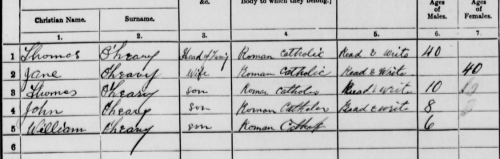 &c. Body to which they belong.] Ages of Males. Ages of Females.
Christian Name. Surname.
1. 2. 3. 4. 5. 6. 7.
1 Thomas O'Heary Head of Family Roman Catholic Read & write 40
2 Jane O'heary Wife Roman Catholic Read & Write 40
3 Thomas O'heary son Roman Catholic Read & write 10
4 John O'heary son Roman Catholic Read & write 8
5 William O'heary son Roman Cathol 6
6